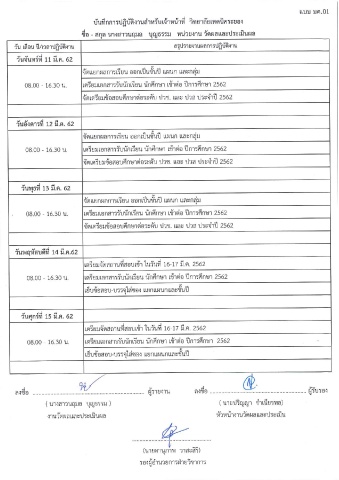 แบบ บค.01
บันทึกการปฏิบัติงานสำหรับเจ้าหน้าที่ วิทยาลัยเทคนิคระยอง
ชื่อ - สกุล นางสาวนฤมล บุญธรรม หน่วยงาน วัดผลและประเมินผล
วัน เดือน ปี/เวลาปฏิบัติงาน สรุปรายงานผลการปฏิบัติงาน
วันจันทร์ที่ 11 มี.ค. 62
08.00 - 16.30 น.
จัดแยกผลการเรียน ออกเป็นชั้นปี แผนก และกลุ่ม
เตรียมเอกสารรับนักเรียน นักศึกษา เข้าต่อ ปีการศึกษา 2562
จัดเตรียมข้อสอบศึกษาต่อระดับ ปวช. และ ปวส ประจำปี 2562
วันอังคารที่ 12 มี.ค. 62
08.00 - 16.30 น.
จัดแยกผลการเรียน ออกเป็นชั้นปี แผนก และกลุ่ม
เตรียมเอกสารรับนักเรียน นักศึกษา เข้าต่อ ปีการศึกษา 2562
จัดเตรียมข้อสอบศึกษาต่อระดับ ปวช. และ ปวส ประจำปี 2562
วันพุธที่ 13 มี.ค. 62
08.00 - 16.30 น.
จัดแยกผลการเรียน ออกเป็นชั้นปี แผนก และกลุ่ม
เตรียมเอกสารรับนักเรียน นักศึกษา เข้าต่อ ปีการศึกษา 2562
จัดเตรียมข้อสอบศึกษาต่อระดับ ปวช. และ ปวส ประจำปี 2562
วันพฤหัสบดีที่ 14 มี.ค.62
08.00 - 16.30 น.
เตรียมจัดสถานที่สอบเข้า ในวันที่ 16-17 มี.ค. 2562
เตรียมเอกสารรับนักเรียน นักศึกษา เข้าต่อ ปีการศึกษา 2562
เย็บข้อสอบ-บรรจุใส่ซอง แยกแผนกและชั้นปี
วันศุกร์ที่ 15 มี.ค. 62
08.00 - 16.30 น.
เตรียมจัดสถานที่สอบเข้า ในวันที่ 16-17 มี.ค. 2562
เตรียมเอกสารรับนักเรียน นักศึกษา เข้าต่อ ปีการศึกษา 2562
เย็บข้อสอบ-บรรจุใส่ซอง แยกแผนกและชั้นปี
ลงชื่อ ผู้รายงาน ลงชื่อ ผู้รับรอง
( นางสาวนฤมล บุญธรรม )
งานวัดผลและประเมินผล หัวหน้างานวัดผลและประเมิน
รองผู้อำนวยการฝ่ายวิชาการ